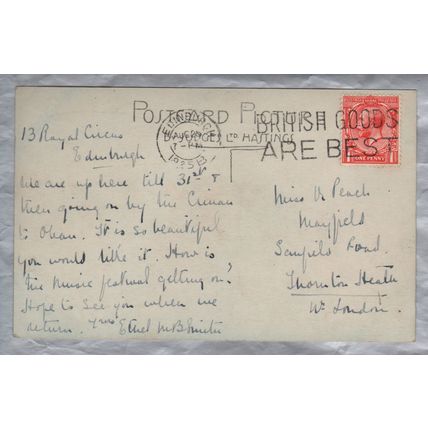 POSTCARD PICTURE
JUDGES LTD. HASTINGS
EDINBURGH
AUG 29
7 - PM
1925
BRITISH GOODS
ARE BEST
1 ONE PENNY 1
13 Royal Circus
Edinburgh
We are up here till 31st &
then going on by the
to Oban. It is so beautiful
you would like it. How is
the music festival getting on?
Hope to see you when we
return. yrs Ethel
Miss V. Peach
Mayfield
Road
Thornton Heath
Nr. London.